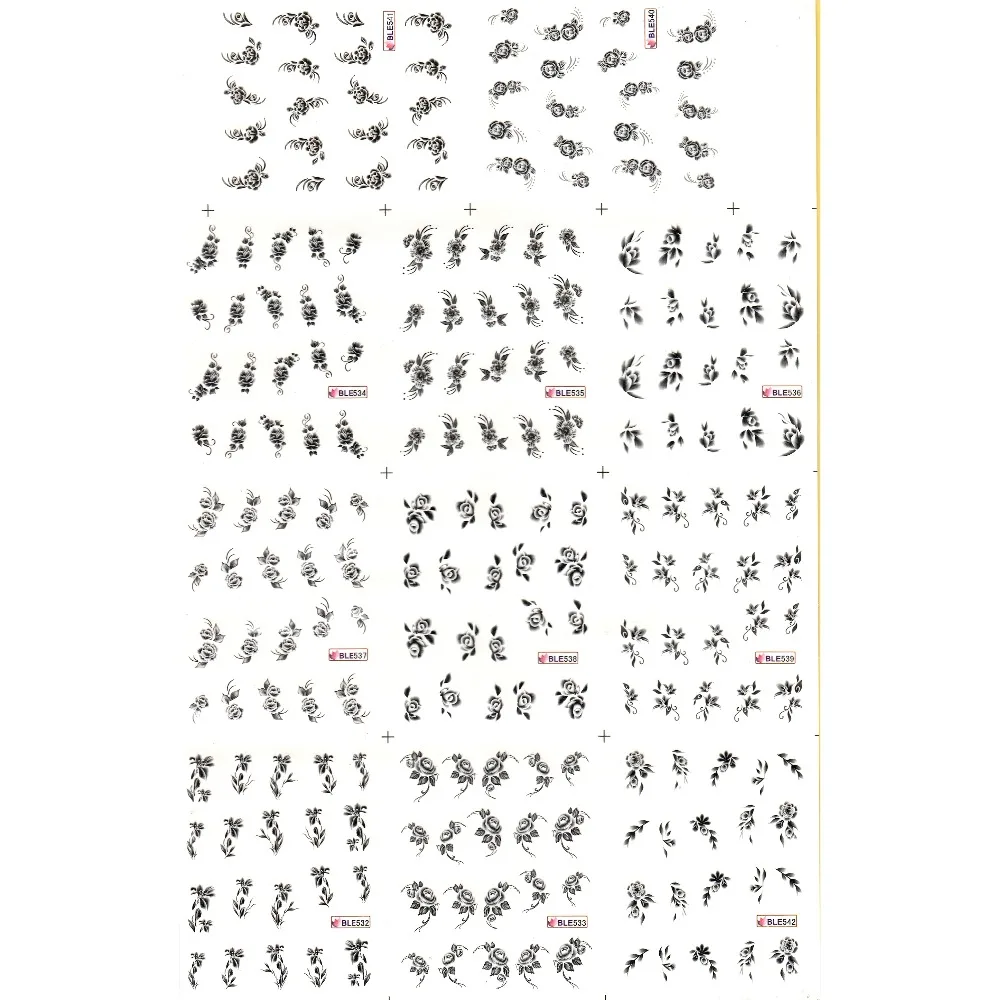 BLE541
BLE540
BLE534
BLE535
BLE536
BLE537
BLE538
BLE539
BLE532
BLE533
BLE542